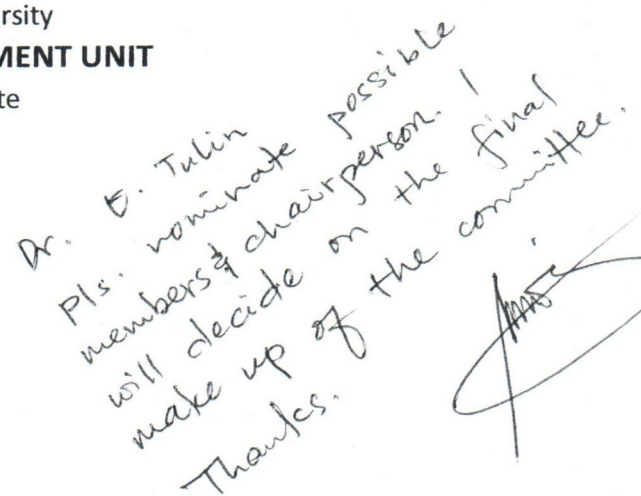 rsity
MENT UNIT
te
Dr. E. Tulin
Pls. nominate possible
members & chairperson. I
will decide on the final
make up of the committee.
Thanks.